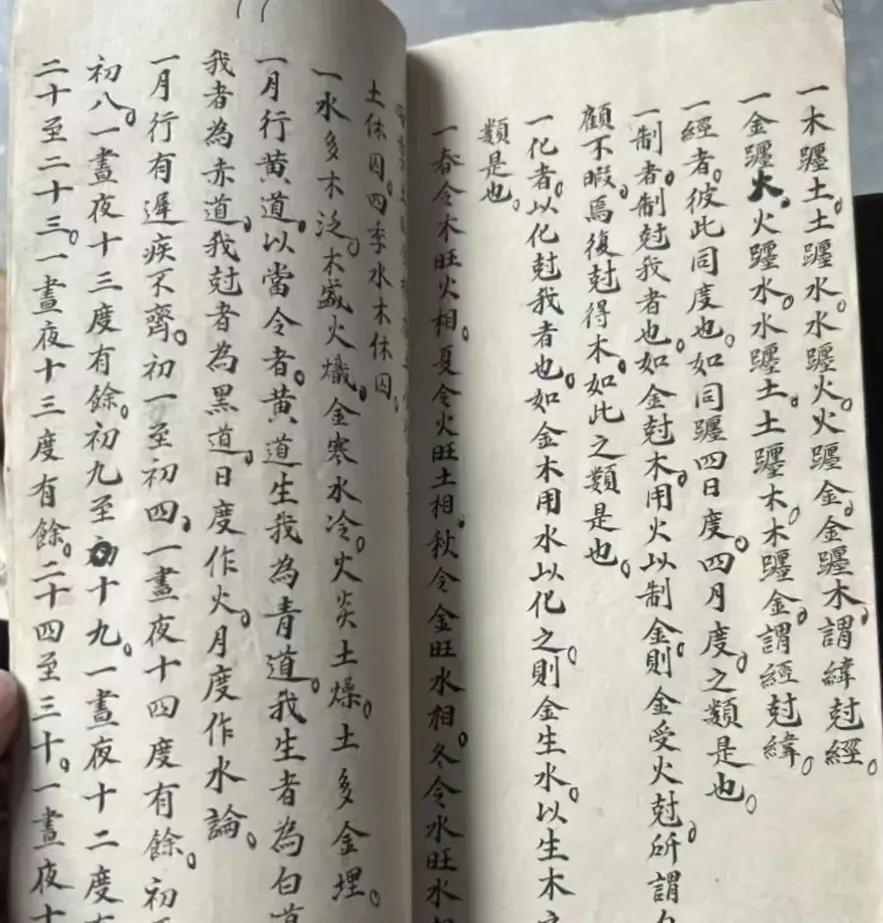 一木躔土。土躔水。水躔火。火躔金。金躔木。謂緯尅經。
一金躔火。火躔水。水躔土。土躔木。木躔金。謂經尅緯。
一經者。彼此同度也。如同躔四日度。四月度。之類是也。
一制者。制尅我者也。如金尅木。用火以制金。則金受火尅。所謂
顧不暇。焉復尅得木。如此之類是也。
一化者。以化尅我者也。如金木用水以化之。則金生水。以生木
類是也。
一春令木旺火相。夏令火旺土相。秋令金旺水相。冬令水旺木
土休囚。四季水木休囚。
一水多木泛。木盛火熾。金寒水冷。火炎土燥。土多金埋。
一月行黃道。以當令者。黃道生我為青道。我生者為白道
我者為赤道。我尅者為黑道。日度作火。月度作水論。
一月行有遲疾不齊。初一至初四。一晝夜十四度有餘。初
初八。一晝夜十三度有餘。初九至十九。一晝夜十二度有
二十至二十三。一晝夜十三度有餘。二十四至三十。一晝夜十